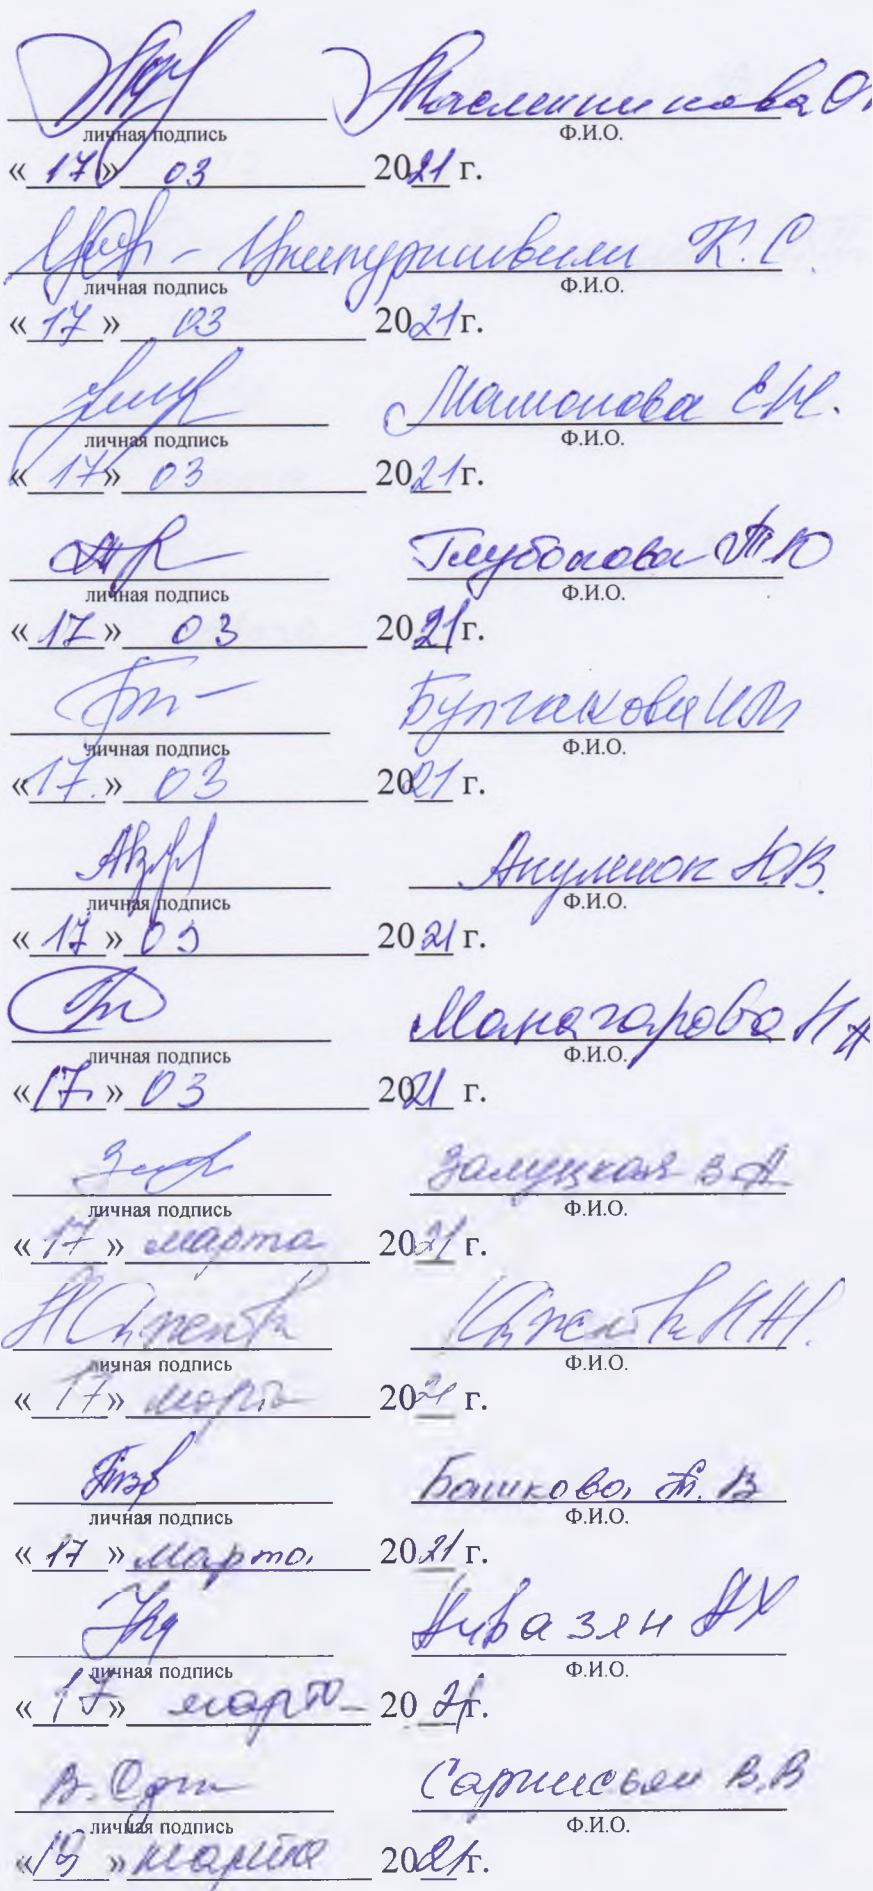 Масленникова О
личная подпись Ф.И.О.
« 17 » 03 2021 г.
Цкипуришвили К.С.
личная подпись Ф.И.О.
« 17 » 03 2021 г.
Мамонова Е.Н.
личная подпись Ф.И.О.
« 17 » 03 2021 г.
Глубокова Т Ю
личная подпись Ф.И.О.
« 17 » 03 2021 г.
Булгакова И
личная подпись Ф.И.О.
« 17. » 03 2021 г.
Акуленок Ю.В.
личная подпись Ф.И.О.
« 17 » 03 2021 г.
Манагарова Н А
личная подпись Ф.И.О.
« 17 » 03 2021 г.
Залуцкая В А
личная подпись Ф.И.О.
« 17 » марта 2021 г.
личная подпись Ф.И.О.
« 17 » марта 2021 г.
Башкова Т. В
личная подпись Ф.И.О.
« 17 » марта 2021 г.
личная подпись Ф.И.О.
« 17 » марта 2021 г.
Саргисьян В.В
личная подпись Ф.И.О.
« 19 » марта 2021 г.